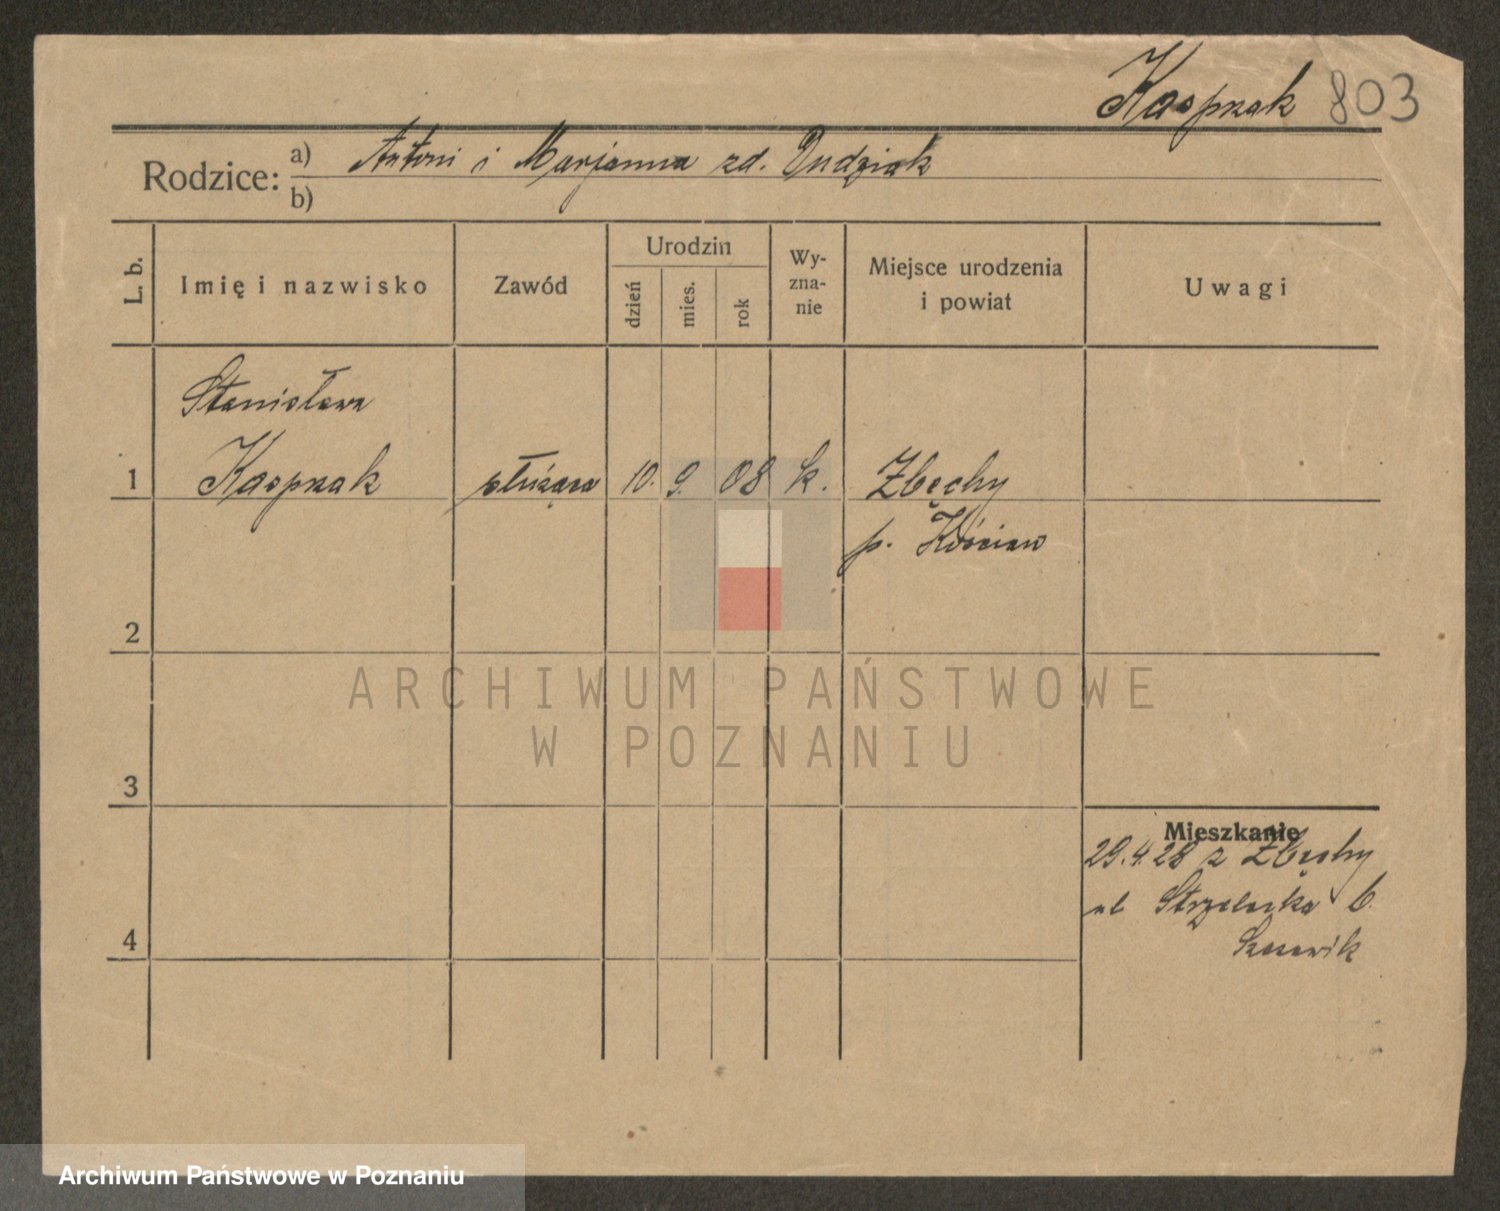 Kasprzak 803
Rodzice: a) Antoni i Marjanna zd. Dudziak
b)
L. b.
Imię i nazwisko
Zawód
Urodzin
dzień
mies.
rok
Wy-
zna-
nie
Miejsce urodzenia
i powiat
Uwagi
Stanisława
1 Kasprzak służąca 10. 9. 08 k. Zbęchy
p. Kościan
2
3
4
Mieszkanie
29.4.28 z Zbęchy
ul Strzelecka 6.
ARCHIWUM PAŃSTWOWE
W POZNANIU
Archiwum Państwowe w Poznaniu